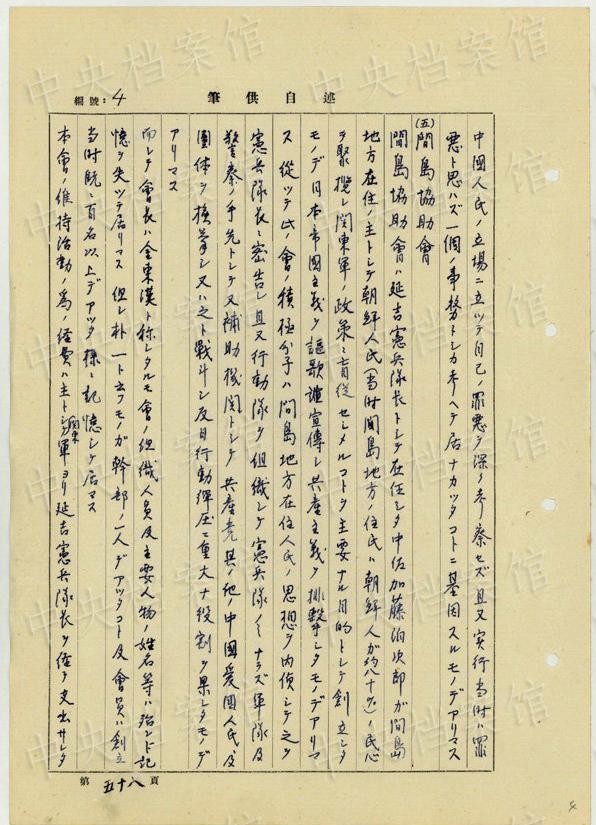 編號：4
筆供自述
中國人民ノ立場ニ立ツテ自己ノ罪悪ヲ深ク考察セズ且又実行当时ハ罪
悪ト思ハズ一個ノ事務トシカ考ヘテ居ナカツタコトニ基因スルモノデアリマス
(五)間島協助會
間島協助會ハ延吉憲兵隊长トシテ在任シタ中佐加藤泊次郎ガ間島
地方在住ノ主トシテ朝鮮人民(当时間島地方ノ住民ハ朝鮮人ガ約八十%)ノ民心
ヲ聚攬シ関東軍ノ政策ニ盲従セシメルコトヲ主要ナル目的トシテ創立シタ
モノデ日本帝國主義ヲ謳歌 宣傳シ共産主義ヲ排撃シタモノデアリマ
ス 従ツテ此ノ會ノ積極分子ハ間島地方在住人民ノ思想ヲ内偵シテ之ヲ
憲兵隊長ニ密告シ且又行動隊ヲ組織シテ憲兵隊ノミナラズ軍隊及
警察ノ手先トシテ又補助機関トシテ共産党其ノ他ノ中國愛國人民ノ及
團体ヲ検挙シ又ハ之ト戦斗シ反日行動弾圧ニ重大ナ役割ヲ果シタモノデ
アリマス
而シテ會長ハ金東漢ト称シタルモ會ノ組織人員及主要人物ノ姓名等ハ殆ンド記
憶ヲ失ツテ居リマス 但シ朴 一ト云フモノガ幹部ノ一人デアツタコト及會員ハ創立
当时既ニ百名以上デアツタ様ニ記憶シテ居マス
本會ノ維持活動ノ為ノ経費ハ主トシテ関東軍ヨリ延吉憲兵隊长ヲ経テ支出サレタ
第 五十八 頁
中央档案馆